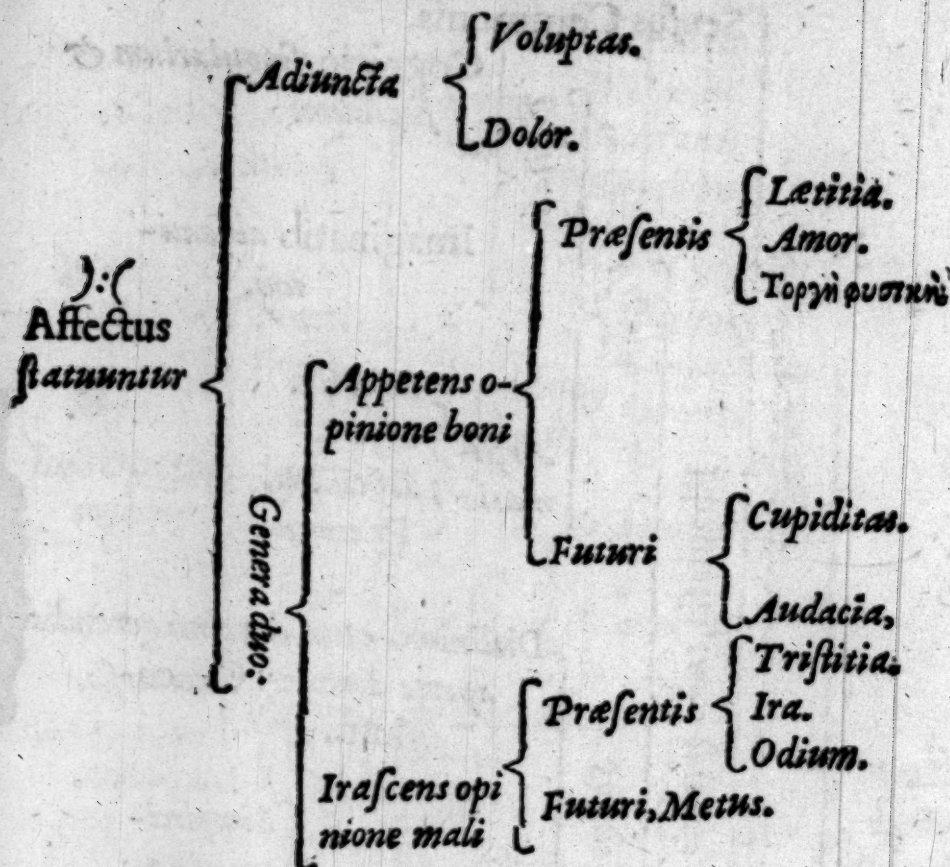 ):(
Affectus
ſtatuuntur
Adiuncta
Voluptas.
Dolor.
Genera duo:
Appetens o-
pinione boni
Præſentis
Lætitia.
Amor.
Τοργὴ φυσικὴ
Futuri
Cupiditas.
Audacia,
Iraſcens opi
nione mali
Præſentis
Triſtitia.
Ira.
Odium.
Futuri, Metus.